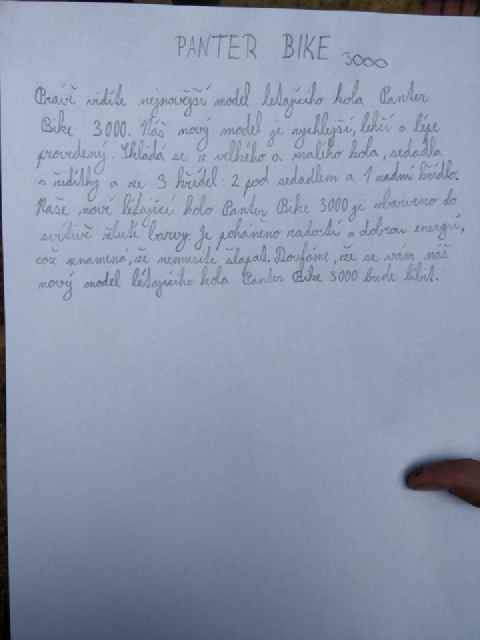 PANTER BIKE 3000
Právě vidíte nejnovější model létajícího kola Panter
Bike 3000. Náš nový model je rychlejší, lehčí a lépe
provedený. Skládá se z velkého a malého kola, sedadla
a řidítky a ze 3 křídel: 2 pod sedadlem a 1 zadní křídlo.
Naše nové létající kolo Panter Bike 3000 je obarveno do
svítivě žluté barvy. Je poháněno radostí a dobrou energií,
což znamená, že nemusíte šlapat. Doufáme, že se vám náš
nový model létajícího kola Panter Bike 3000 bude líbit.